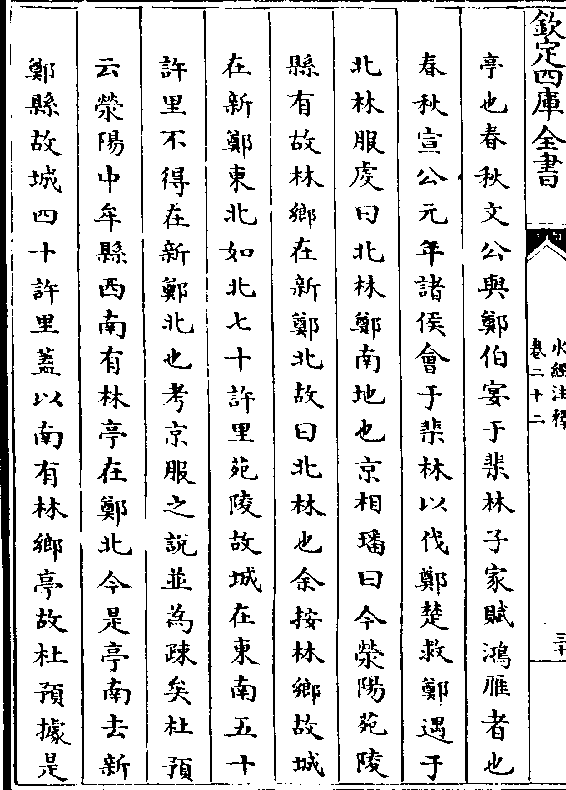 欽定四庫全書
水經注釋
卷二十二
亭也春秋文公與鄭伯宴于棐林子家賦鴻雁者也
春秋宣公元年諸侯會于棐林以伐鄭楚救鄭遇于
北林服虔曰北林鄭南地也京相璠曰今滎陽苑陵
縣有故林鄉在新鄭北故曰北林也余按林鄉故城
在新鄭東北如北七十許里苑陵故城在東南五十
許里不得在新鄭北也考京服之說並為疎矣杜預
云滎陽中牟縣西南有林亭在鄭北今是亭南去新
鄭縣故城四十許里蓋以南有林鄉亭故杜預據是